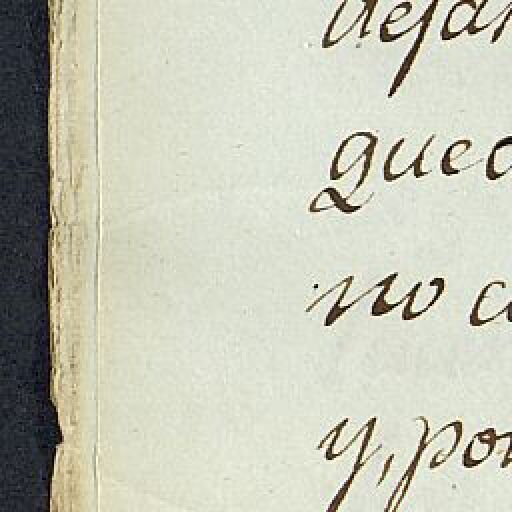 dejar
qued
no c
y, por